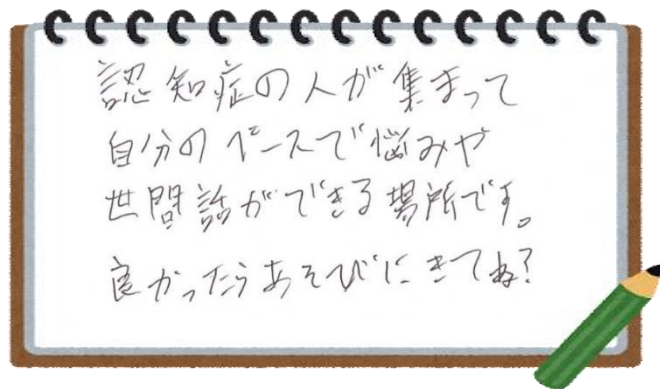 認知症の人が集まって
自分のペースで悩みや
世間話ができる場所です。
良かったらあそびにきてね?